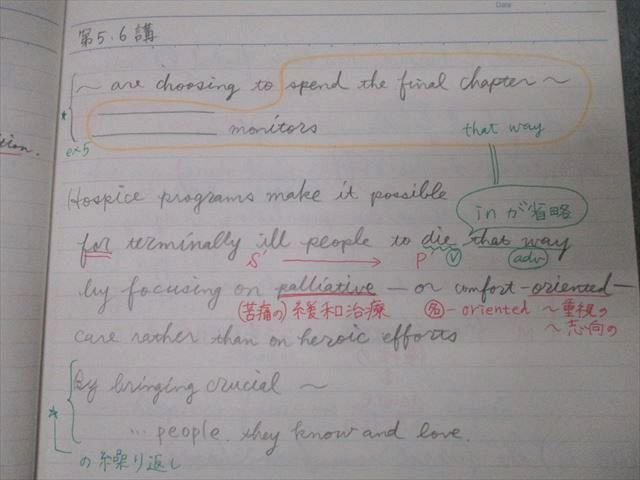 Date
第5.6講
~ are choosing to spend the final chapter ~
monitors
that way
ex5
tion.
Hospice programs make it possible
inが省略
for terminally ill people to die that way
S' → P' Ⓥ adv
by focusing on palliative — or comfort-oriented —
(苦痛の)緩和治療 ㊔-oriented ~重視の
~志向の
care rather than on heroic efforts
By bringing crucial ~
... people they know and love.
の繰り返し